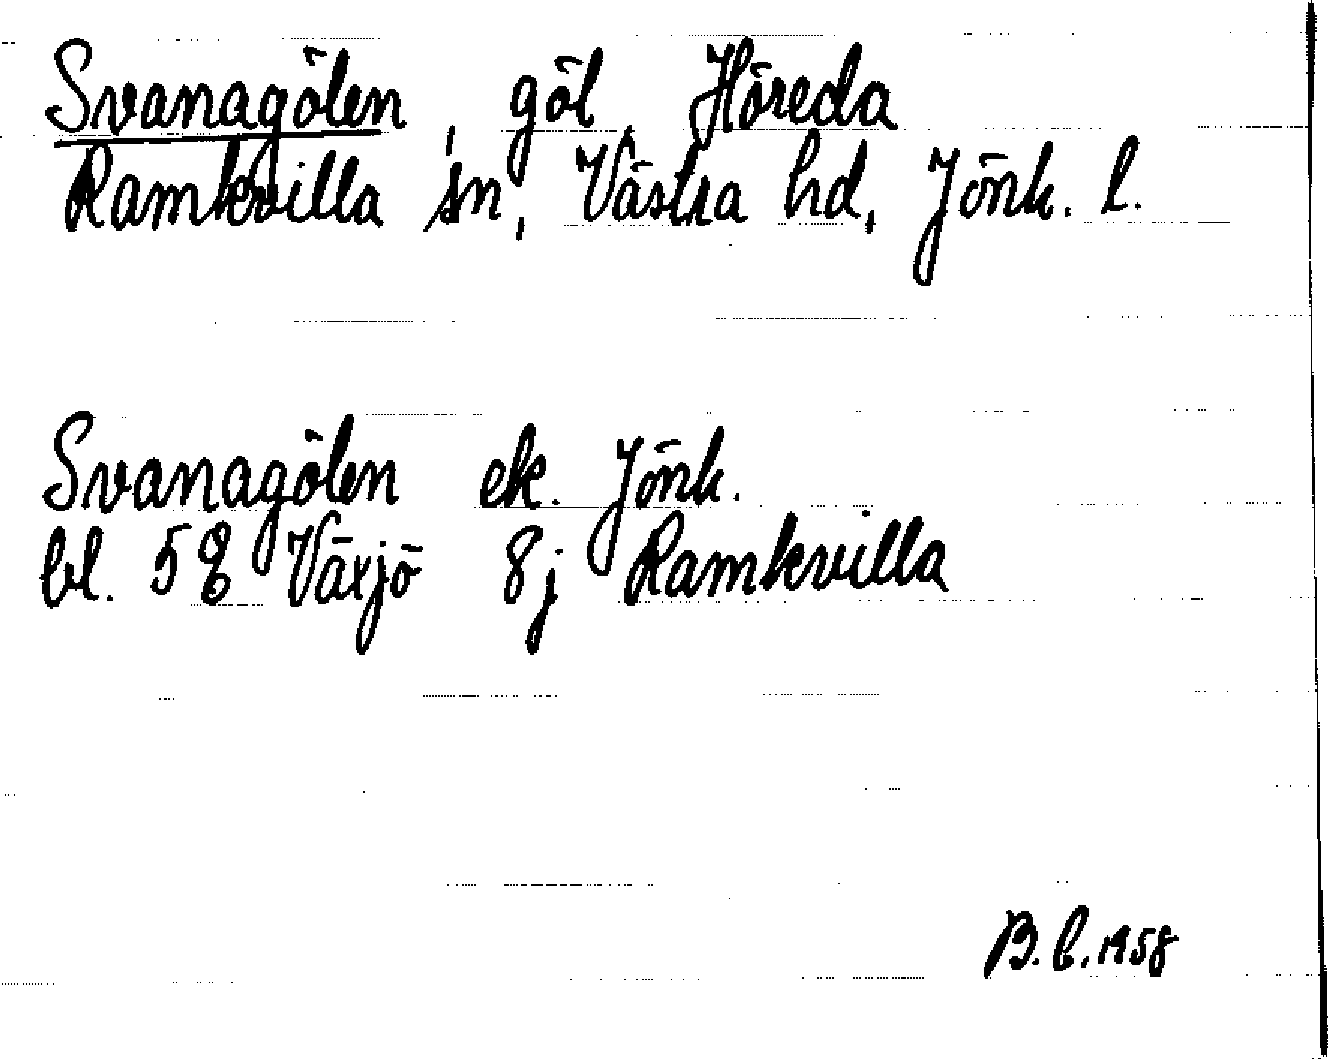 Svanagölen, göl, Höreda
Ramkvilla sn, Västra hd, Jönk. l.
Svanagölen ek. Jönk.
bl. 5 E Växjö 8j Ramkvilla
B. E. 1958